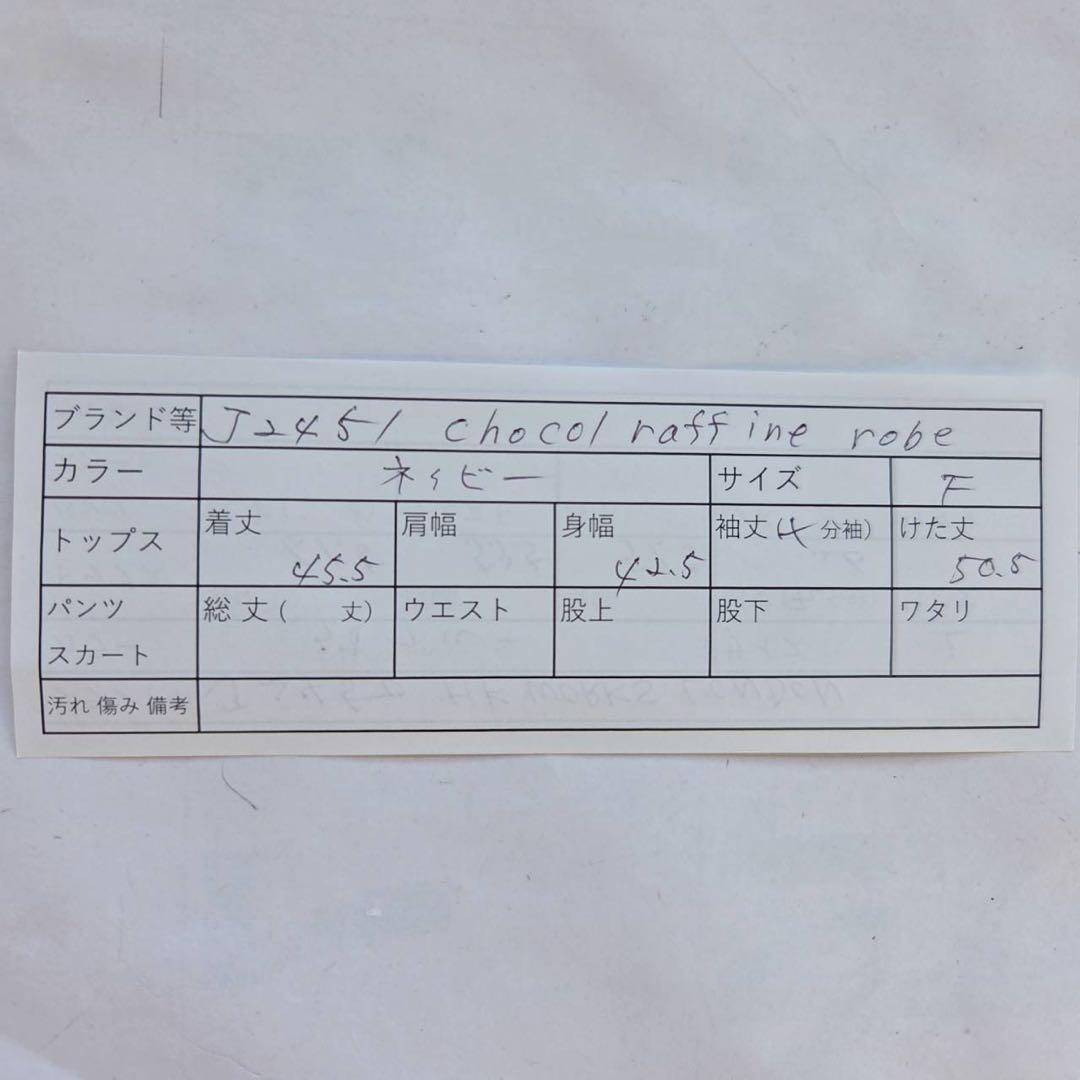 ブランド等 J2451 chocol raffine robe
カラー ネイビー サイズ F
トップス 着丈 45.5 肩幅 身幅 42.5 袖丈(4分袖) けた丈 50.5
パンツ スカート 総丈( 丈) ウエスト 股上 股下 ワタリ
汚れ 傷み 備考